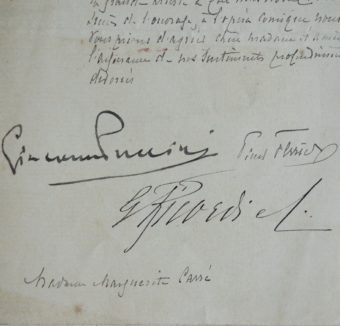 la grande artiste
succès de l'ouvrage, à l'opéra comique nous
vous prions d'agréer chère madame
l'assurance de nos sentiments profondément
dévoués
Giacomo Puccini
Paul Ferrier
G Ricordi & C.
Madame Marguerite Carré